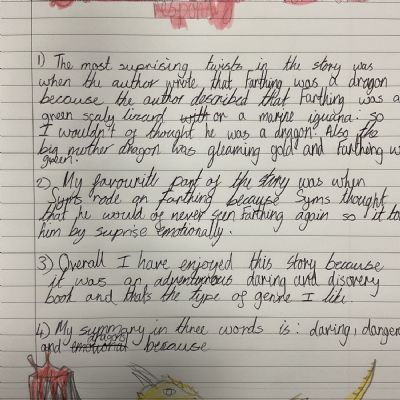 1) The most suprising twists in the story was
when the author wrote that Farthing was a dragon
because the author described that Farthing was a
green scaly lizard or a marine iguana. so
I wouldn't of thought he was a dragon. Also the
big mother dragon was gleaming gold and Farthing w
green.
2) My favourite part of the story was when
Syms rode on Farthing because Syms thought
that he would of never seen Farthing again so it to
him by suprise emotionally.
3) Overall I have enjoyed this story because
it was an adventurous daring and discovery
book and thats the type of genre I like.
4) My summary in three words is: daring, danger
dragons
and emotional because